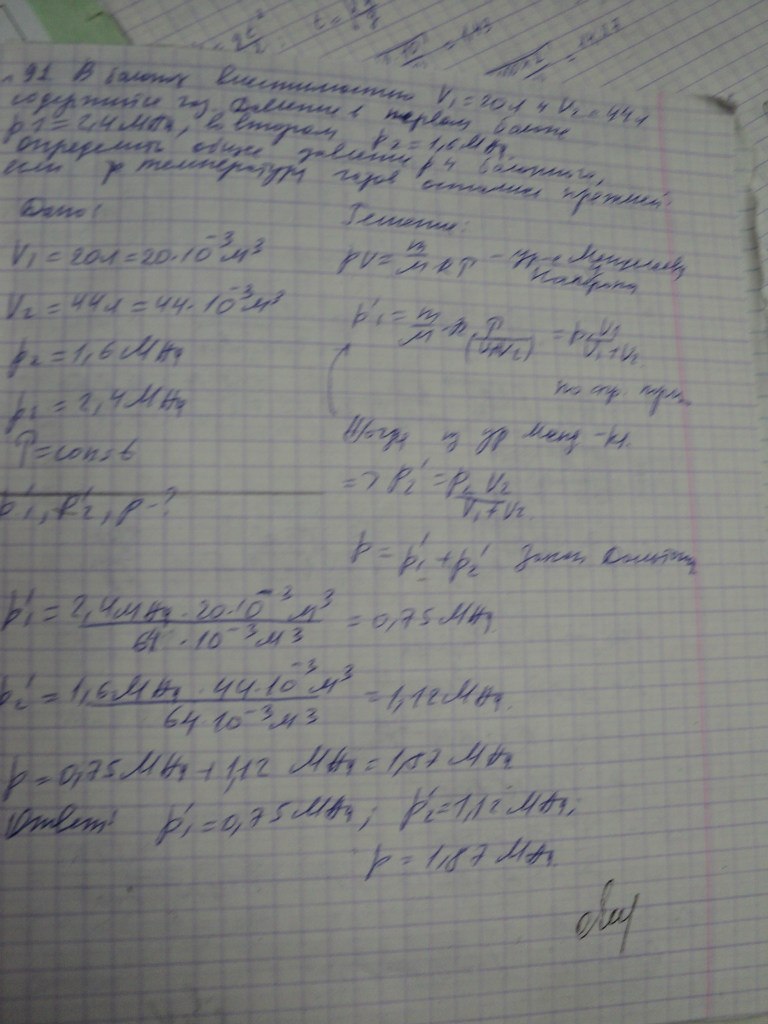 91 В баллонах вместимостью V₁ = 20л и V₂ = 44л
содержится газ. Давление в первом баллоне
p1 = 2,4 МПа, во втором p₂ = 1,6 МПа
определить общее давление p и
если температура газов осталась прежней.
Дано:
V₁ = 20л = 20·10⁻³ м³
V₂ = 44л = 44·10⁻³ м³
p₂ = 1,6 МПа
= 2,4 МПа
T = const
p'₁, p'₂, p - ?
Решение:
pV = m/M RT - ур-е Менделеева
p'₁ = m/M · R · T/(V₁+V₂) = p₁ V₁/(V₁+V₂)
Тогда из ур Менд - Кл.
=> p'₂ = p₂ V₂/(V₁+V₂)
p = p'₁ + p'₂ Закон Дальтона
p'₁ = 2,4 МПа · 20·10⁻³ м³ / 64 · 10⁻³ м3 = 0,75 МПа
p'₂ = 1,6 МПа · 44·10⁻³ м³ / 64·10⁻³ м3 = 1,12 МПа.
p = 0,75 МПа + 1,12 МПа = 1,87 МПа
Ответ: p'₁ = 0,75 МПа; p'₂ = 1,12 МПа;
p = 1,87 МПа.